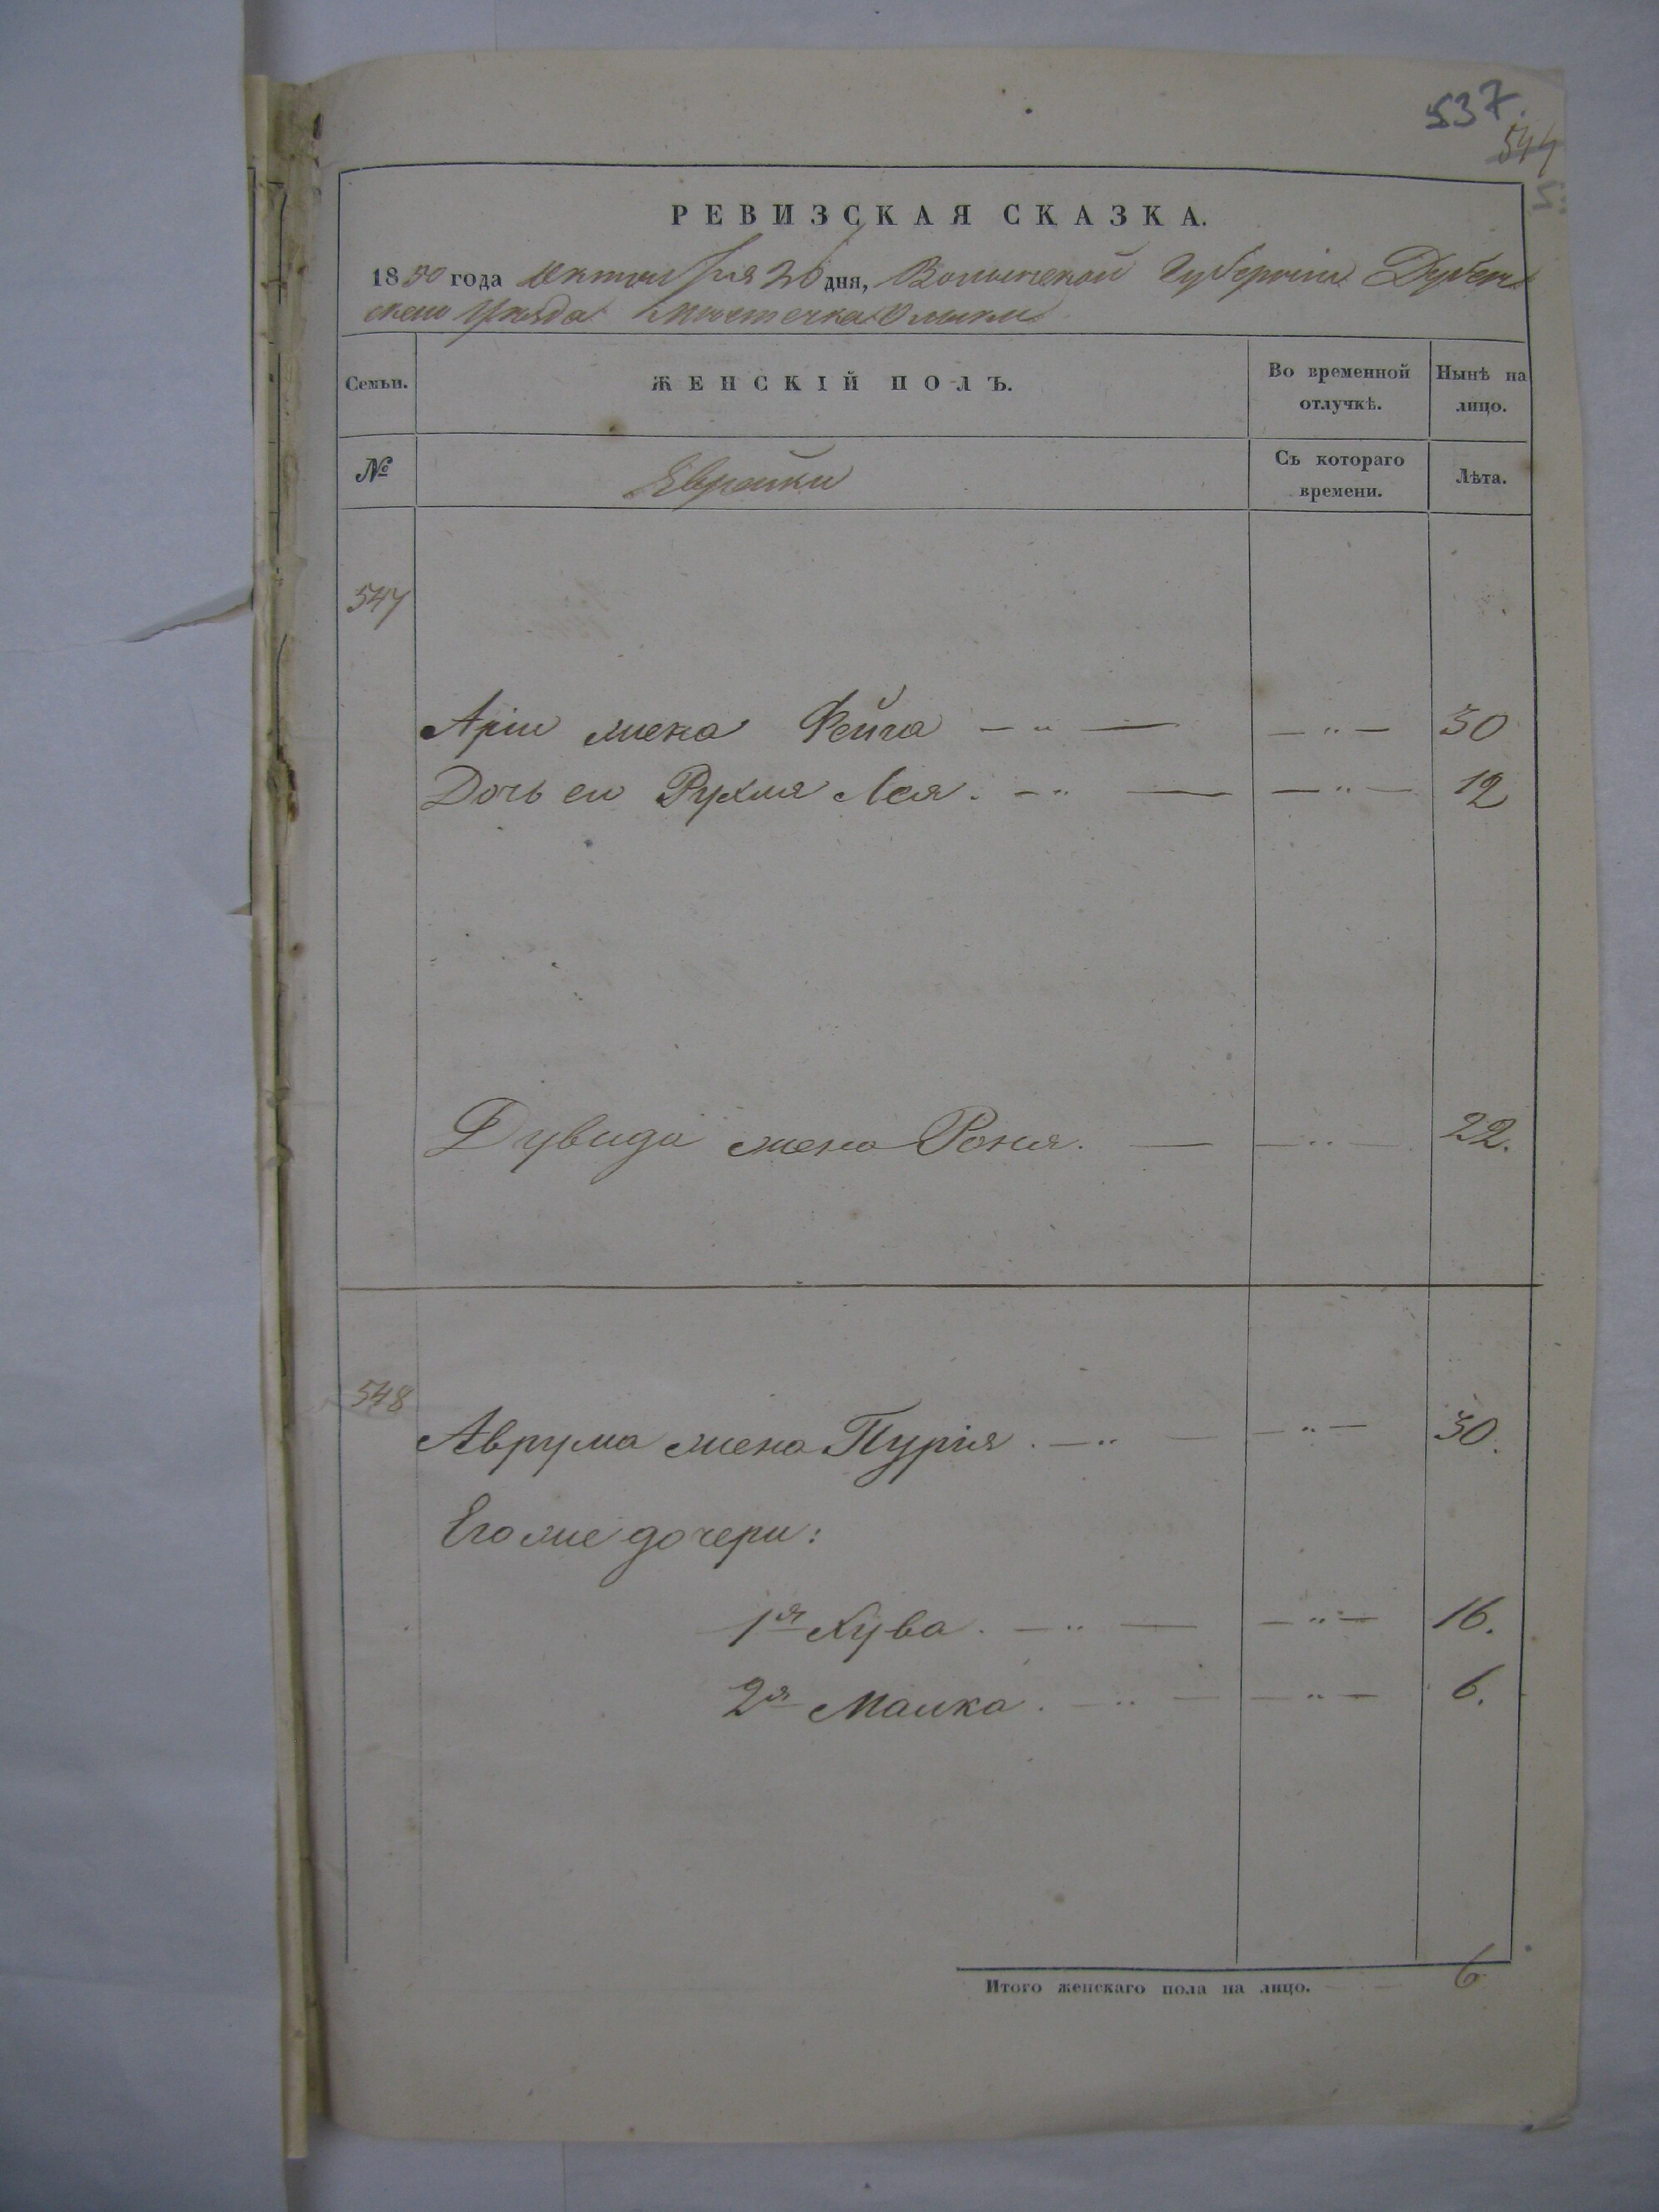 537.
544
РЕВИЗСКАЯ СКАЗКА.
1850 года октября 26 дня, Волынской Губернiи Дубен
скаго Уѣзда Мѣстечка Олыки
Семьи.
ЖЕНСКІЙ ПОЛЪ.
Во временной отлучкѣ.
Нынѣ на лицо.
№
Еврейки
Съ котораго времени.
Лѣта.
547
Арiи жена Фейга — „ — — „ — 30
Дочь ею Рухля Лея. — „ — — „ — 12
Дувида жена Роня. — — „ — 22.
548
Аврума жена Пурiя. — „ — — „ — 30.
Его же дочери:
1я Хува. — „ — — „ — 16.
2я Малка. — „ — — „ — 6.
Итого женскаго пола на лицо. — — 6